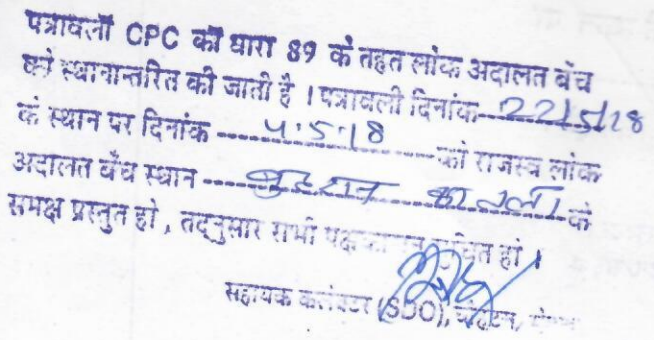 पत्रावली CPC की धारा 89 के तहत लोक अदालत बैंच
को स्थानान्तरित की जाती है । पत्रावली दिनांक 22/5/18
के स्थान पर दिनांक 4.5.18 को राजस्व लोक
अदालत बैंच स्थान के
समक्ष प्रस्तुत हो , तद्नुसार सभी पक्षकारान सूचित हो ।
सहायक कलेक्टर (SDO), चौहटन,